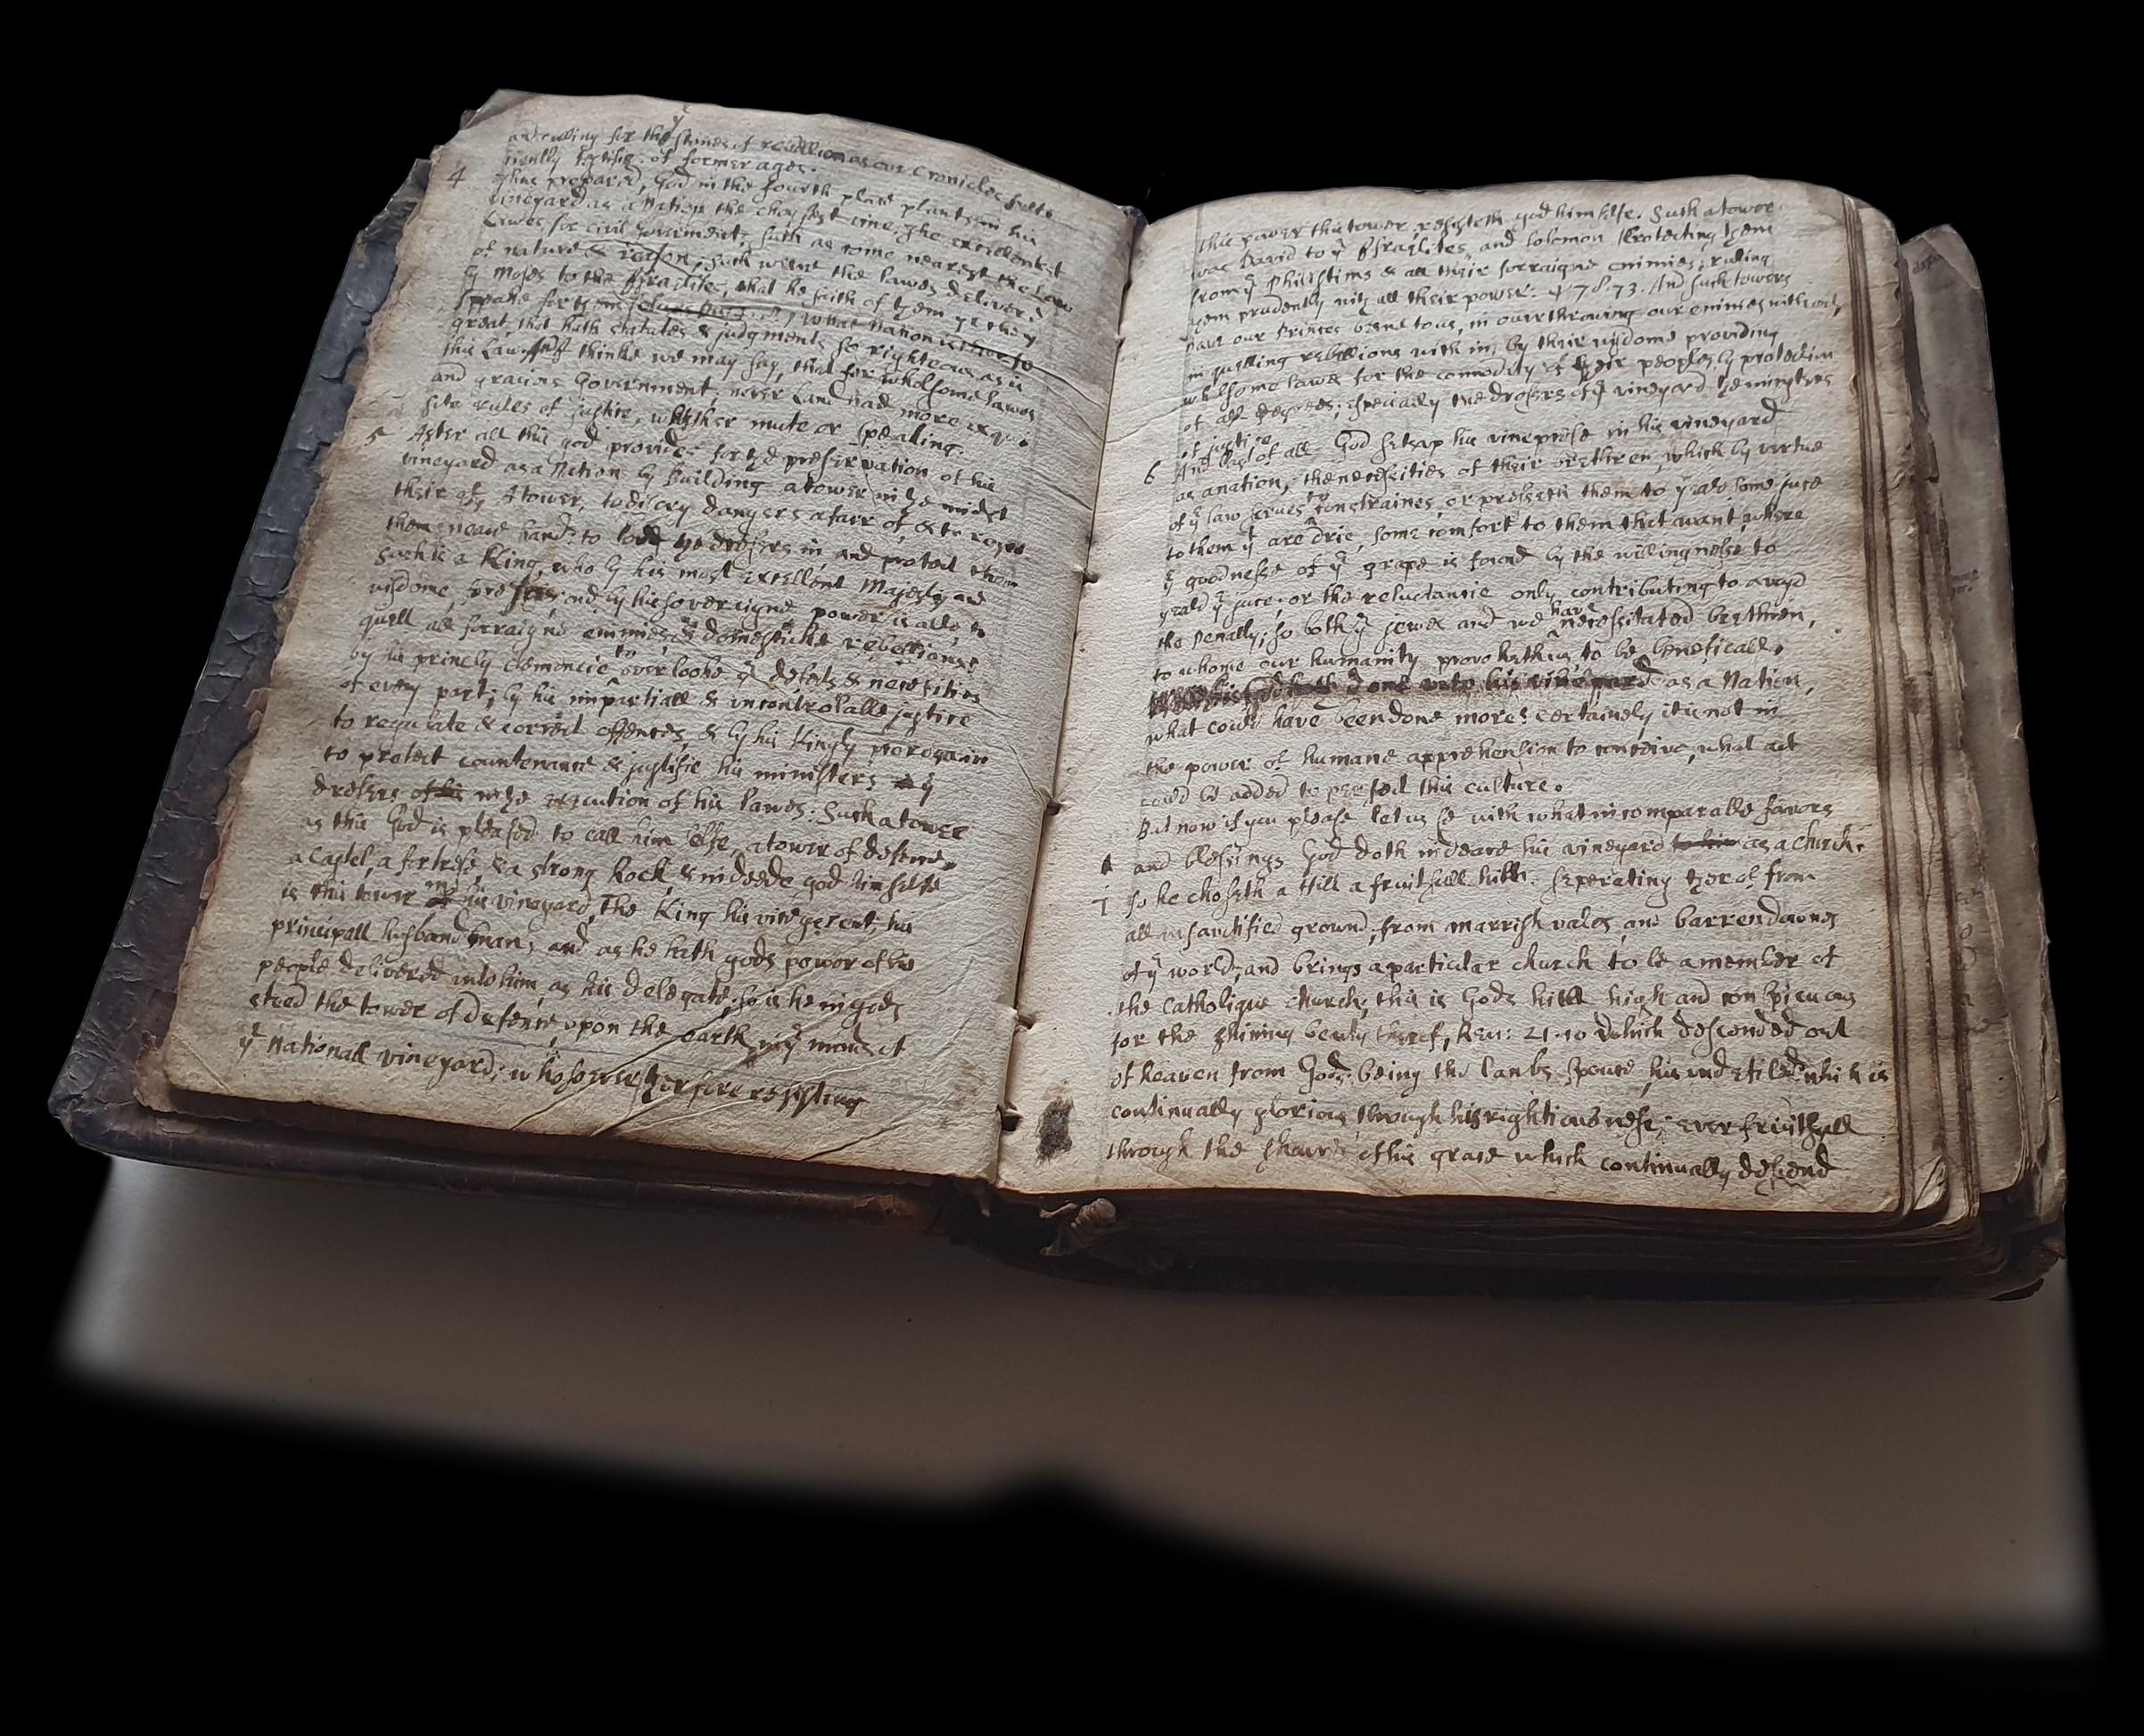 and culling for the stones of rebellion as our Cronicles suffi
ciently testifie of former ages.
4 Thus prepared, God in the fourth place planteth his
vineyard as a Nation the choysest vine, The excellentest
Lawes for civil Government; such as come nearest the Law
of nature & reason; such weare the lawes delivered
by Moses to the Israelites, that he saith of them
what Nation is ther so
great, that hath statutes & judgments so righteous as is
this Law. And I thinke we may say, that for wholsome lawes
and gracious Government, never Land had more exqui
site rules of justice, whether mute or speaking.
5 After all this god provides for the preservation of his
vineyard as a Nation by building a tower in the midst
therof, A tower, to discry dangers afarr of, & to
them neare hand: to lodg the dressers in, and protect them
such is a King, who by his most excellent Majesty and
wisdome, and by his soveraigne power is able to
quell all forraigne enimies, & domesticke rebellions:
by his princly clemencie to overlooke ye defects & necesities
of every part; by his impartiall & uncontrolable justice
to regulate & correct offences, & by his Kingly prerogative
to protect countenance & justifie his ministers ye
dressers of his in the execution of his lawes: Such a tower
as this God is pleased to call him selfe, a tower of defence,
a Castel, a fortresse, & a strong Rock, & indeede god himselfe
is this tower in his vineyard, The King his vicegerent, his
principall husbandman; and as he hath gods power of his
people delivered into him, as his delegate, so is he in gods
steed the tower of defence, upon the earth in ye midst of
ye Nationall vineyard; whosoever therfore resisting
this power this tower, resisteth god himselfe. Such a tower
was David to ye Israelites and Solomon Protecting them
from ye Philistims & all their forraigne enimies; ruling
them prudently with all their power. 78.73. And such towers
have our Princes bene to us, in overthrowing our enimies without,
in quelling rebellions with in, by their wisdome providing
wholsome lawes for the commodity of their peoples, by protection
of all degrees; especially the dressers of ye vineyard the ministers
of justice
6 And last of all God sets up his vinepresse in his vineyard
as a nation, the necessities of their brethren, which by virtue
of ye law serves to constraines, or presseth them to yeald some juce
to them yt are drie, some comfort to them that want, where
ye goodnesse of ye grape is found by the willingnesse to
yeald ye juce, or the reluctancie only contributing to avoyd
the Penalty; so both ye Jewes and we have necessitated brethren,
to whome our humanity provoketh us to be beneficall.
done unto his vineyard as a Nation,
what could have been done more? certainely it is not in
the power of humane apprehension to conceive, what act
could be added to perfect this culture.
But now if you please let us se with what incomparable favors
and blessings God doth indeare his vineyard to him as a church:
1 so he choseth a Hill a fruitfull hill. Seperating therof from
all unsanctified ground, from marrish vales, and barren downes
of ye world; and brings a particular church to be a member of
the Catholique church; this is Gods hill high and conspicuous
for the shining beuty therof, Rev: 21.10 which desconded out
of heaven from God: being the lambs spouse, his undefiled which is
continually glorious, through his rightiousnesse, ever fruitfull
through the showrs of his grace which continually descend